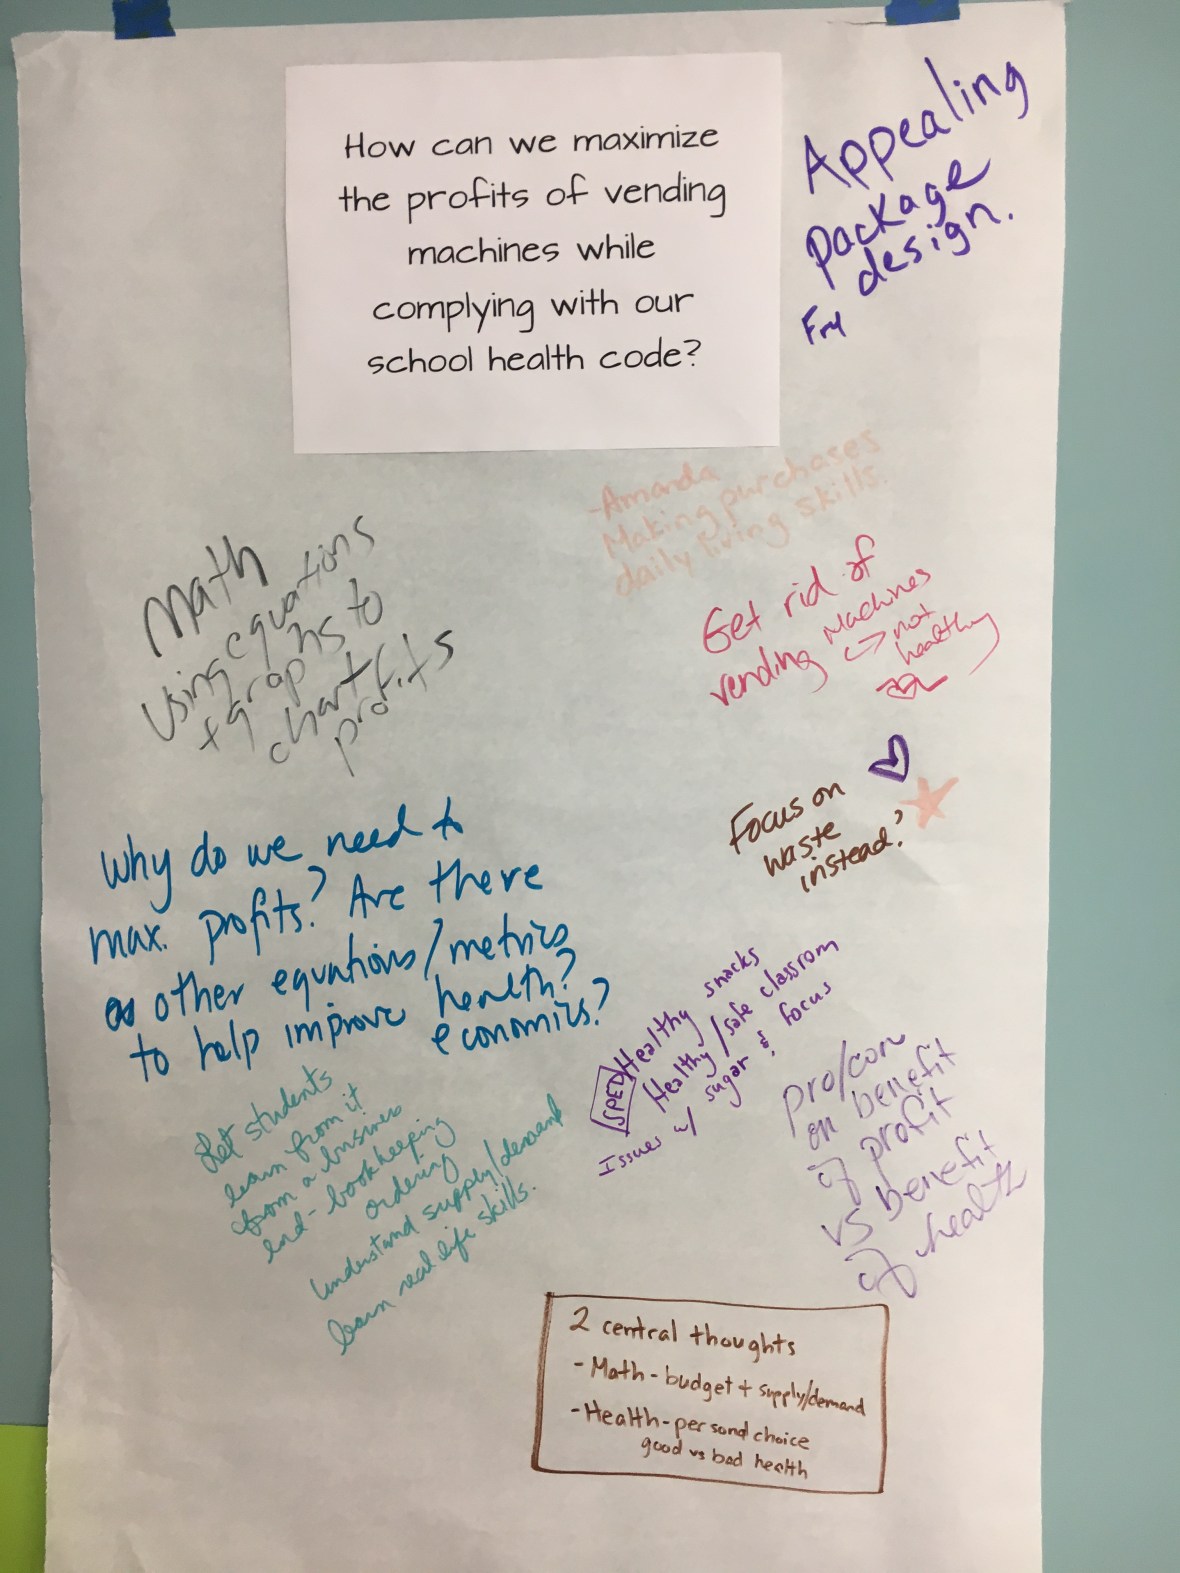 How can we maximize
the profits of vending
machines while
complying with our
school health code?
Appealing
package
design.
-Amanda
Making purchases
daily living skills.
Math
using equations
+ graphs to
chart
profits
Get rid of
vending machines
not
healthy
Focus on
waste
instead?
Why do we need to
max. profits? Are there
other equations/metrics
to help improve health?
economics?
SPED Healthy snacks
Healthy/safe classrom
Issues w/ sugar & focus
pro/con
on benefit
of profit
vs benefit
of health
Let students
learn from it
from a business
end - bookkeeping
ordering
understand supply/demand
learn real life skills.
2 central thoughts
- Math - budget + supply/demand
- Health - personal choice
good vs bad health